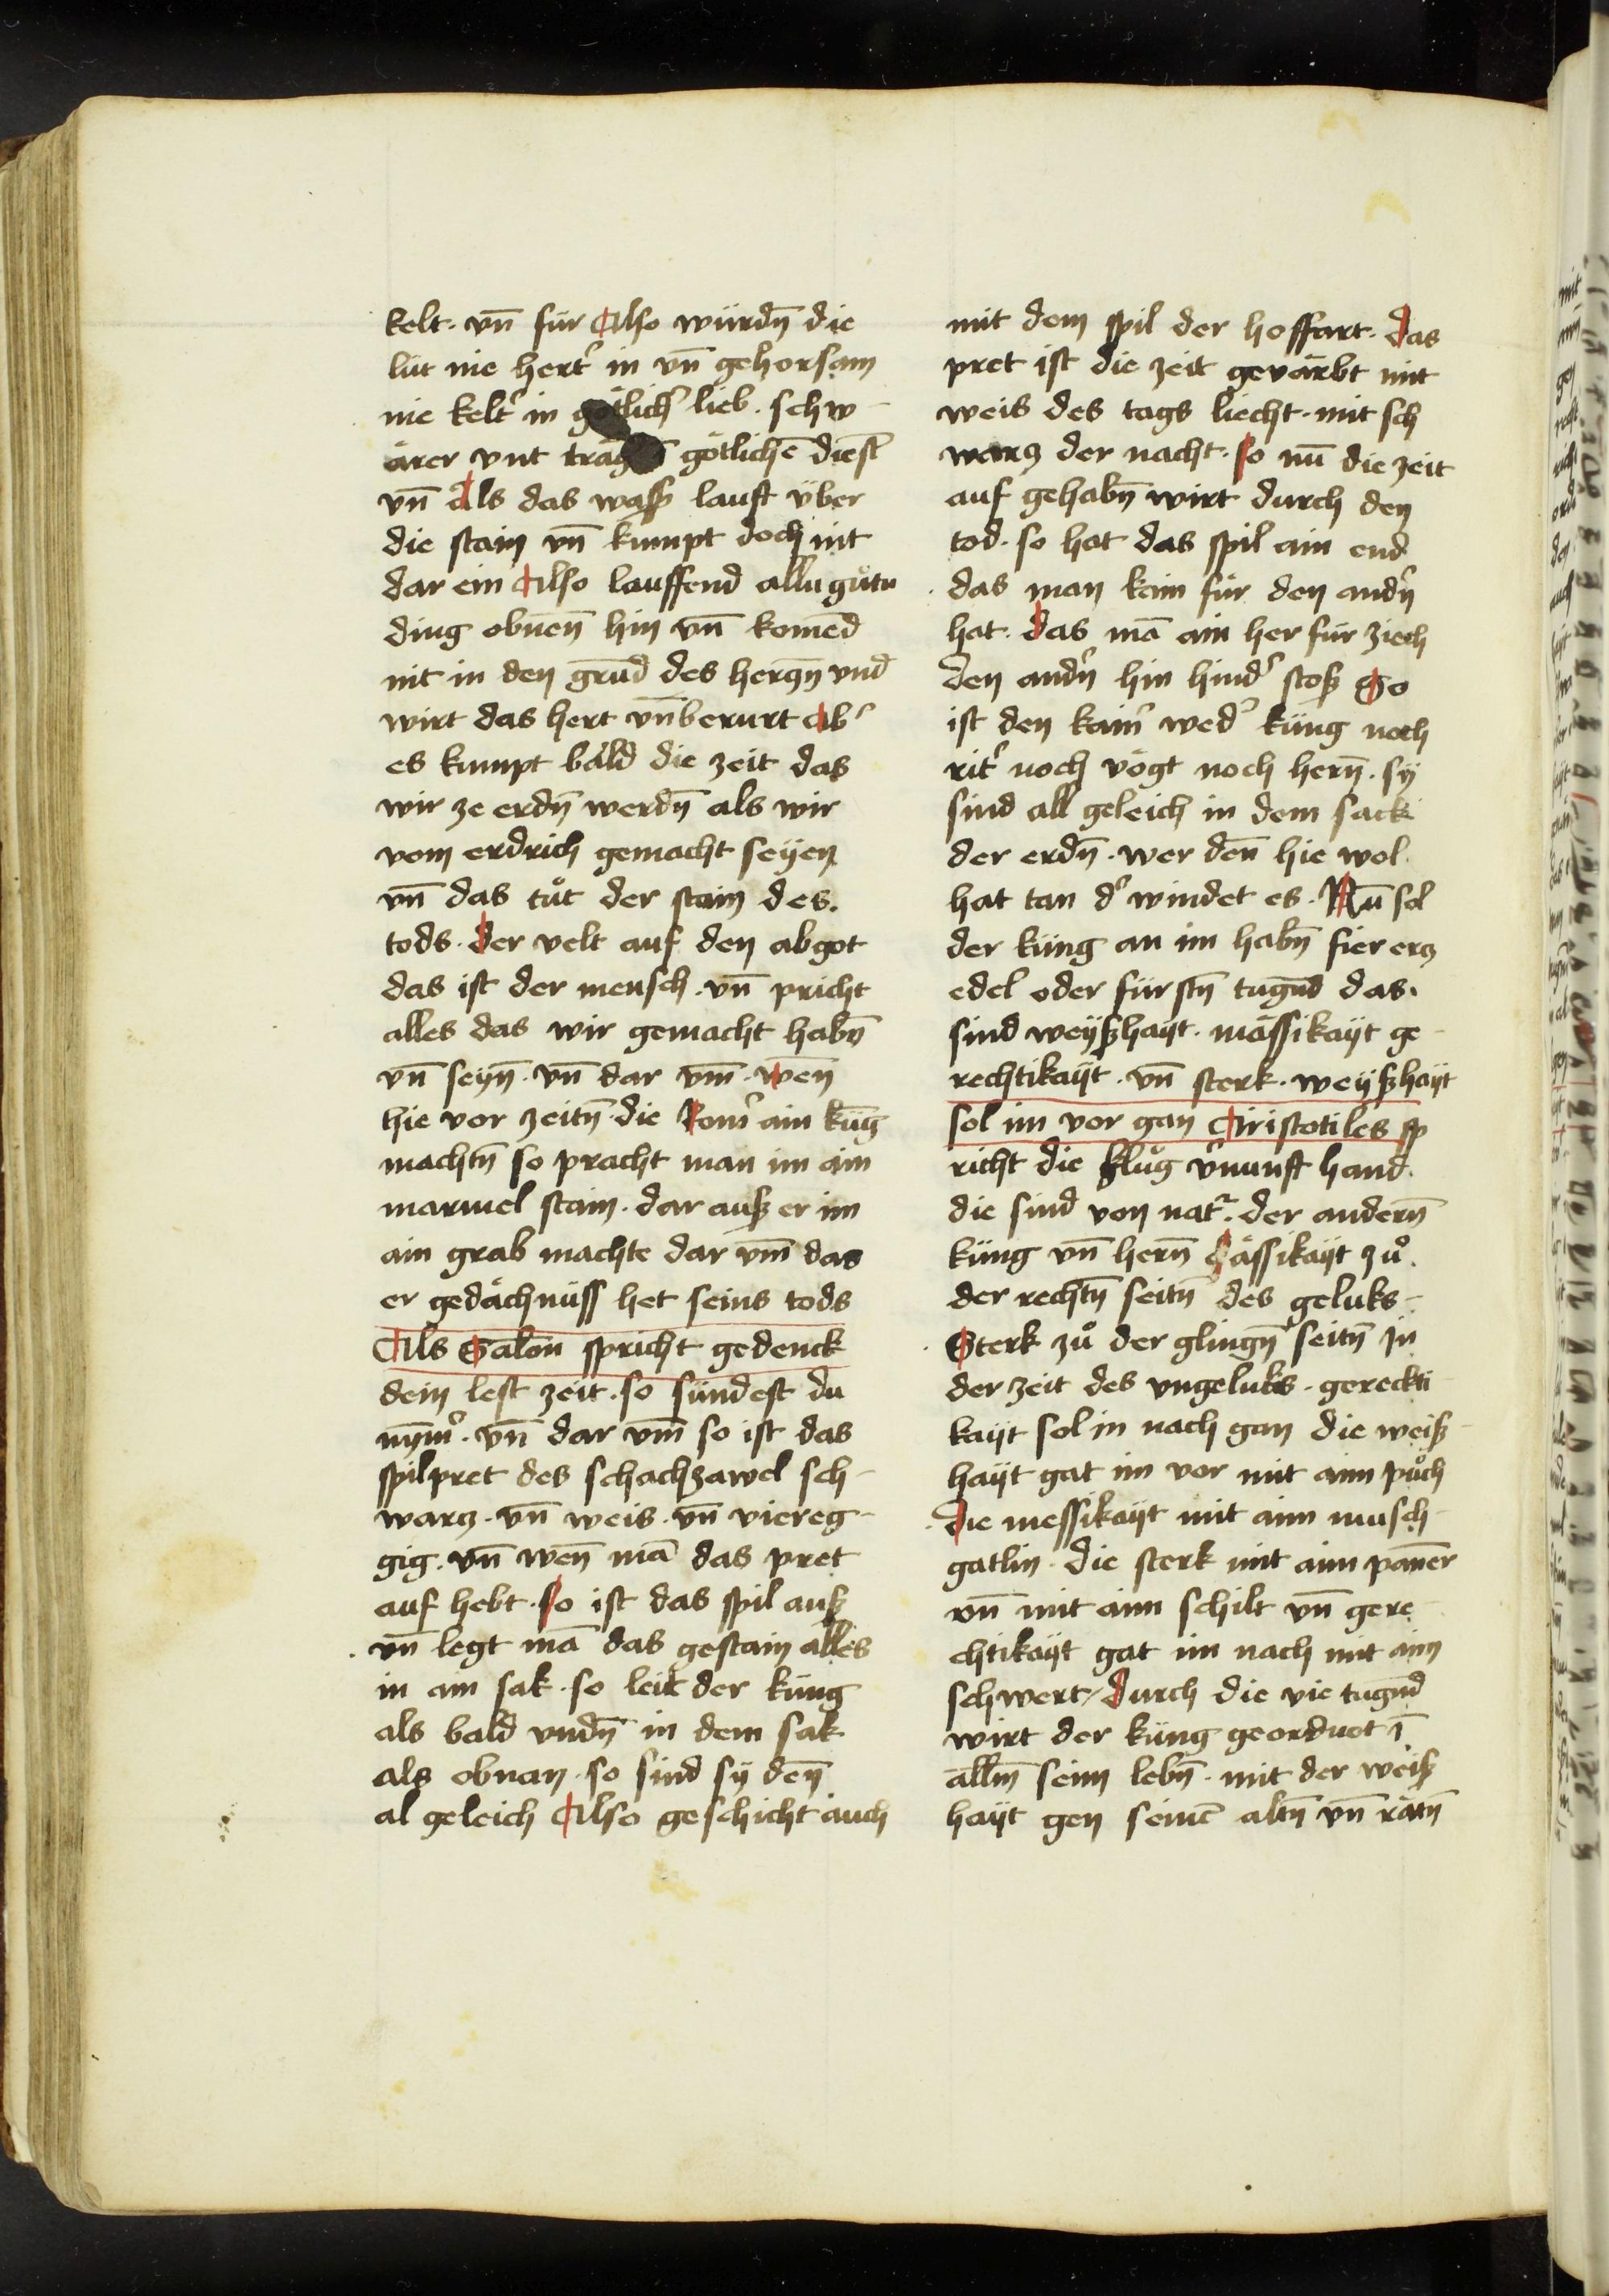 kelt · vn̄ für Also würdn̄ die
lüt nie hert͛ in vn̄ gehorsam
nie kelt͛ in götlich͛ lieb · schw-
ärer vnt götlichē dienst
vn̄ als das wass͛ lauft über
die stain vn̄ kumpt doch nit
dar ein Also lauffend allu gůtu
ding obnen̄ hin vn̄ komēd
nit in den grūd des herczn̄ vnd
wirt das hert vn̄berurt Ab͛
es kumpt bald die zeit das
wir ze erdn̄ werdn̄ als wir
vom erdrich gemacht seyen
vn̄ das tůt der stain des
tods · der velt auf den abgot
das ist der mensch · vn̄ pricht
alles das wir gemacht habn̄
vn̄ seyn̄ · vn̄ dar vm̄ · wen̄
hie vor zeitn̄ die Rom͛ ain küng
machtn̄ so pracht man im ain
marmel stain · dar auß er im
ain grab machte dar vm̄ das
er gedächnüss het seins tods
Als Salon spricht gedenck
dein lest zeit · so sündest du
nym̄͛ · vn̄ dar vm̄ so ist das
spilpret des schachzawel sch-
warcz · vn̄ weis · vn̄ viereg-
gig · vn̄ wen̄ mā das pret
auf hebt · so ist das spil auß
vn̄ legt mā das gestain alles
in ain sak · so leit der küng
als bald vndn̄ in dem sak
als obnan · so sind sy den̄
al geleich Also geschicht auch
mit dem spil der hoffart · das
pret ist die zeit gevärbt mit
weis des tags liecht · mit sch
warcz der nacht · so nū die zeit
auf gehabn̄ wirt durch den
tod · so hat das spil ain end
das man kain für den andn̄
hat · das mā ain her für ziech
den andn̄ hin hind͛ stoß So
ist den kain͛ wed͛ küng noch
rit͛ noch vögt noch hern̄ · sy
sind all geleich in dem sack
der erdn̄ · wer den̄ hie wol
hat tan d͛ windet es · Nū sol
der küng an im habn̄ fier ercz
edel oder fürstn̄ tugnd das
sind weyßhayt · mässikayt ge-
rechtikayt · vn̄ sterk · weyßhayt
sol im vor gan Aristotiles sp
richt die klůg v͛nunft hand
die sind von nat͛ · der andern̄
küng vn̄ hern̄ Mässikayt zů
der rechtn̄ seitn̄ des geluks -
Sterk zů der glingn̄ seitn̄ in
der zeit des vngeluks · gereckti
kayt sol in nach gan die weiß-
hayt gat im vor mit aim půch
die messikayt mit aim musch-
gatlin · die sterk mit aim pan̄er
vn̄ mit aim schilt vn̄ gere-
chtikayt gat im nach mit aim
schwert / durch die vie tugnd
wirt der küng geordnet ī
allm̄ seim lebn̄ · mit der weiß
hayt gen seinē altn̄ vn̄ rätn̄